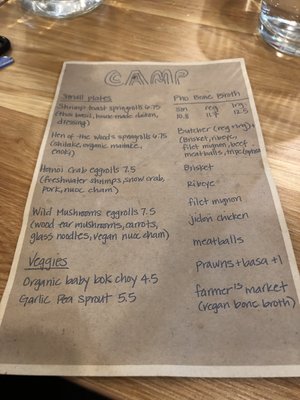 CAMP
Small plates
Shrimp toast springrolls 6.75
(thai basil, house made daikon,
dressing)
Hen of the woods springrolls 6.75
(shiitake, organic maitake,
enoki)
Hanoi Crab eggrolls 7.5
(freshwater shrimps, snow crab,
pork, nuoc cham)
Wild Mushrooms eggrolls 7.5
(wood ear mushrooms, carrots,
glass noodles, vegan nuoc cham)
Veggies
Organic baby bok choy 4.5
Garlic Pea sprout 5.5
Pho Bone Broth
sm reg lrg
10.5 11.5 12.5
Butcher (reg + lrg)
(Brisket, ribeye,
filet mignon, beef
meatballs, tripe
Brisket
Ribeye
filet mignon
Jidori chicken
meatballs
prawns + basa +1
farmer's market
(vegan bone broth)